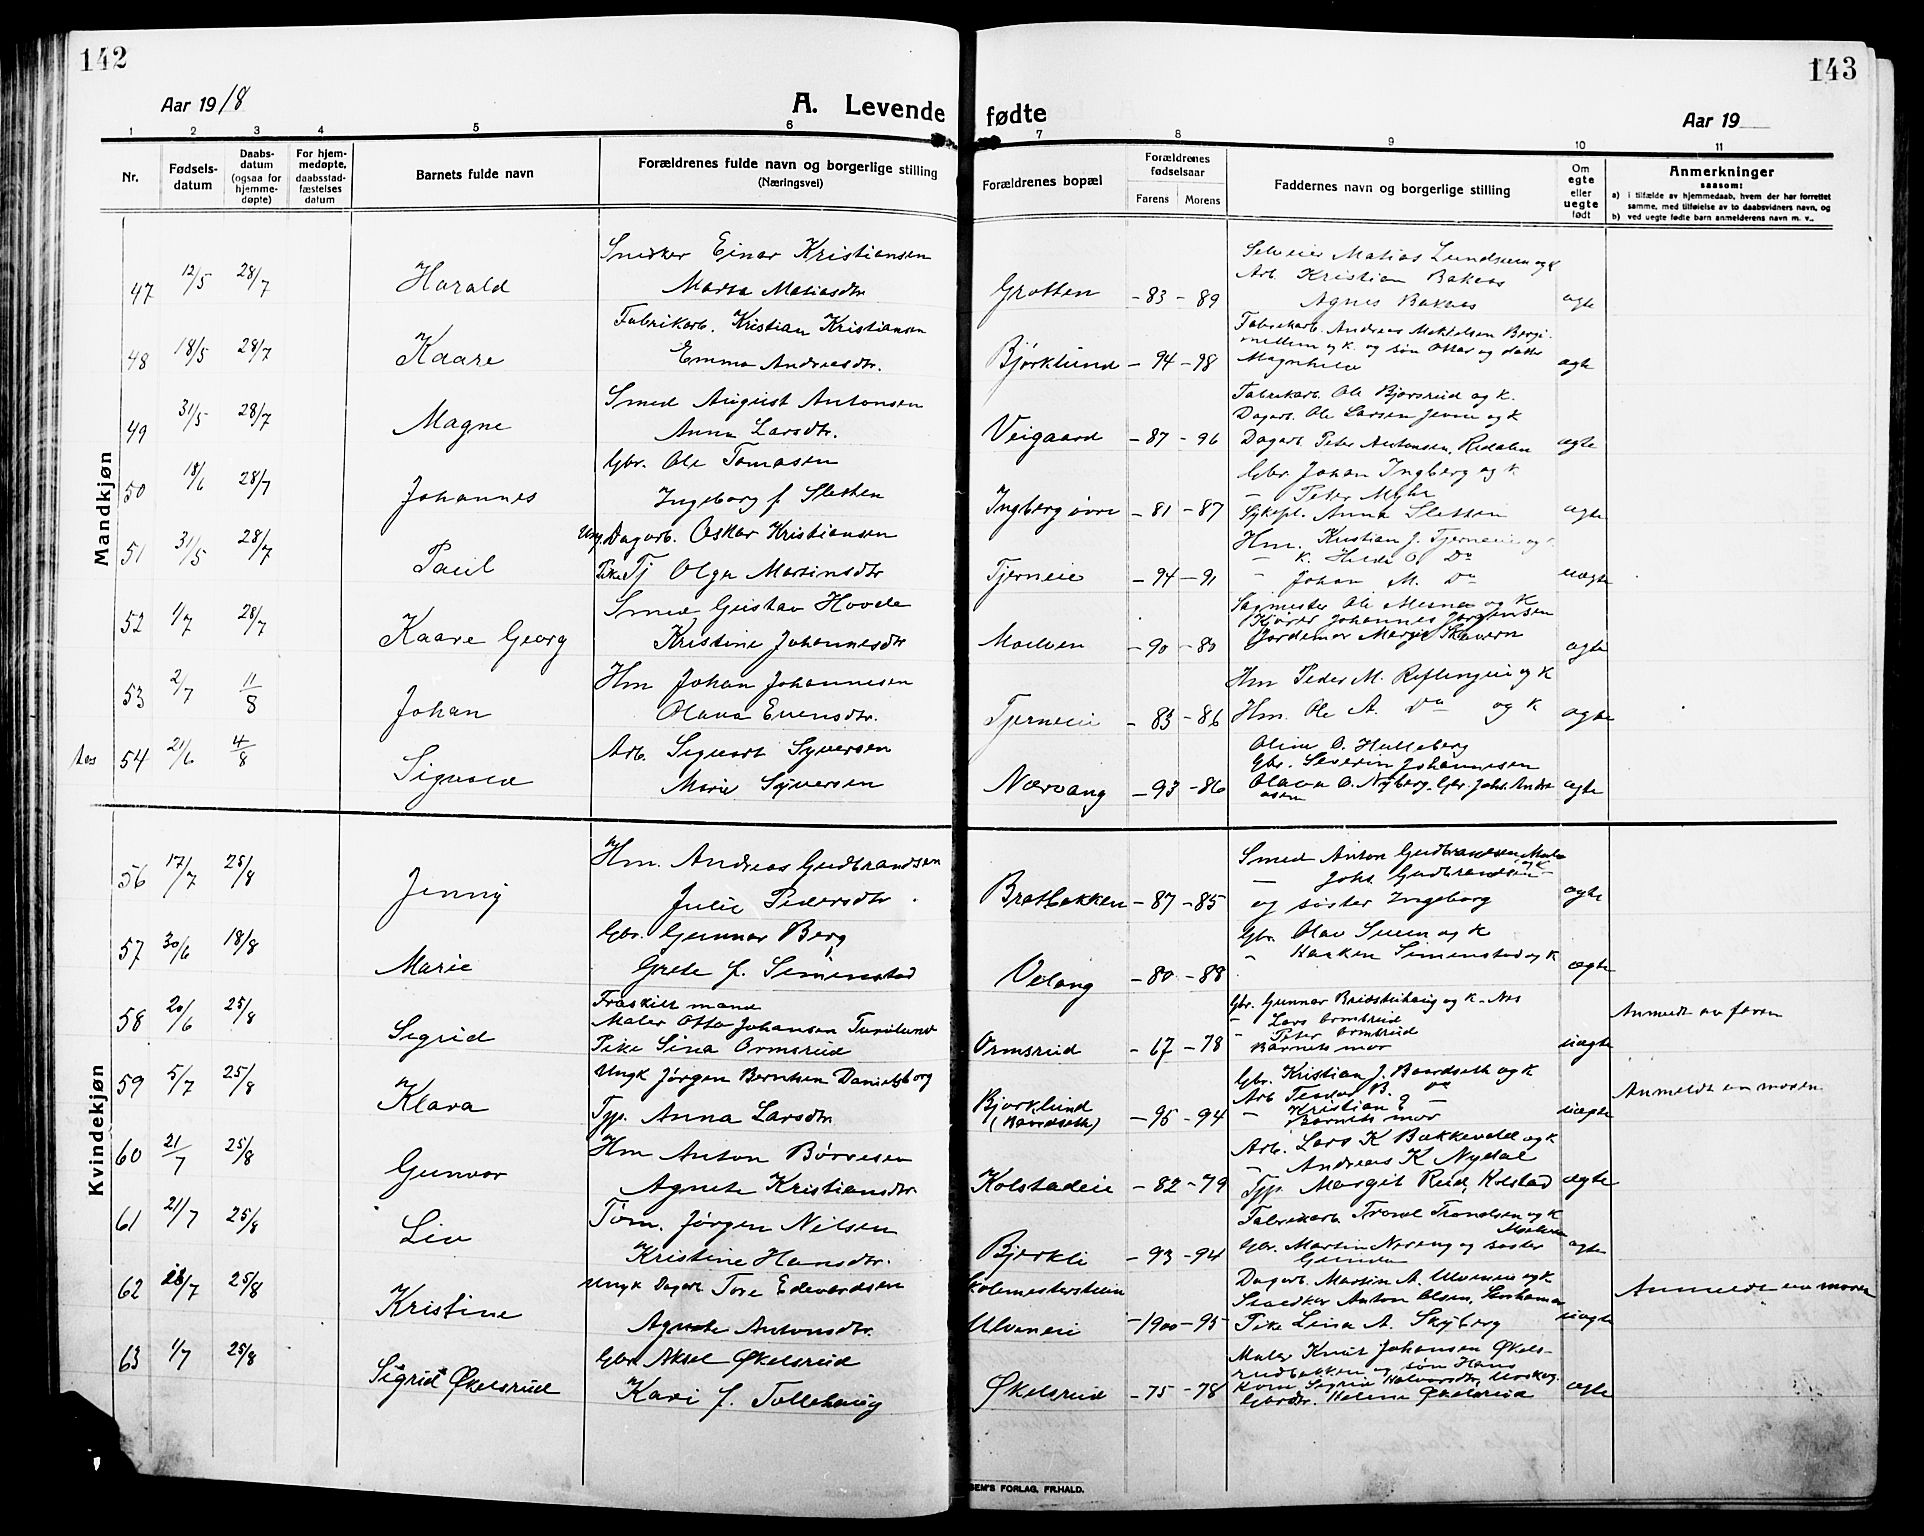 142
Aar 1918
A. Levende
1 2 3 4 5 6
Nr.
Fødsels-
datum
Daabs-
datum
(ogsaa for
hjemme-
døpte)
For hjem-
medøpte,
daabsstad-
fæstelses
datum
Barnets fulde navn
Forældrenes fulde navn og borgerlige stilling
(Næringsvei)
Mandkjøn
47 12/5 28/7 Harald
Snedker Einar Kristiansen
Marta Matiasdtr
48 18/5 28/7 Kaare
Fabrikarb. Kristian Kristiansen
Emma Andreasdtr.
49 31/5 28/7 Magne
Smed August Antonsen
Anna Larsdtr.
50 18/6 28/7 Johannes
Gbr. Ole Tomasen
Ingeborg f. Sletten
51 31/5 28/7 Paul
Ung. Dagarb. Oskar Kristiansen
Pike Tj Olga Martinsdtr
52 1/7 28/7 Kaare Georg
Smed Gustav Hovde
Kristine Johannesdtr
53 2/7 11/8 Johan
Hm Johan Johannesen
Olava Evensdtr.
54 21/6 4/8 Sigvald
Arb. Sigvart Syversen
Marie Syversen
Kvindekjøn
56 17/7 25/8 Jenny
Hm. Andreas Gudbrandsen
Julie Pedersdtr.
57 30/6 18/8 Marie
Gbr. Gunnar Berg
Grete f. Simenstad
58 20/6 25/8 Sigrid
Fraskilt mand
Maler Otto Johansen
Pike Sina Ormsrud
59 5/7 25/8 Klara
Ungk Jørgen Berntsen Danielsborg
Tjp. Anna Larsdtr.
60 21/7 25/8 Gunvor
Hm Anton Børresen
Agnete Kristiansdtr.
61 21/7 25/8 Liv
Tøm. Jørgen Nilsen
Kristine Hansdtr.
62 25/8 Kristine
Ungk Dagarb Tore Edevardsen
Agnete Antonsdtr.
63 1/7 25/8 Sigrid Økelsrud
Gbr Aksel Økelsrud
Kari f. Tollehaug
143
fødte
Aar 19
7 8 9 10 11
Forældrenes bopæl
Forældrenes
fødselsaar
Farens Morens
Faddernes navn og borgerlige stilling
Om
egte
eller
uegte
født
Anmerkninger
saasom:
a) i tilfælde av hjemmedaab, hvem der har forrettet
samme, med tilføielse av to daabsvidners navn, og
b) ved uegte fødte barn anmelderens navn m. v..
Selveier Matias Lundsveen og k
Arb Kristian Bakaas
Grotten - 83 - 89 Agnes Bakaas ægte
Fabrikarb. Andreas
og k. og søn Ottar og datter
Bjørklund - 94 - 98 Magnhild ægte
Fabrikarb. Ole Bjørsrud og k.
Dagarb. Ole Larsen og k
Veigaard - 87 - 96 Dagarb. Peter Antonsen, ægte
Gbr Johan Ingberg og k.
- Peter Myhr
Ingberg øvre - 81 - 87 Sykepl. Anna Sletten ægte
Hm. Kristian J. Tjerneie og k
- K. Hilda O. Do
Tjerneie - 94 - 91 - Johan M. Do uægte
Sagmester Ole Mesna og k
Kjører Johannes Jørgensen
Moelven - 90 - 80 Jordemor ægte
Hm Peder M. og k
Tjerneie - 83 - 86 Hm. Ole A. Do og k ægte
Oline O. Hulleberg
Gbr. Severin Johannesen
Nærvang - 93 - 86 Olava O. Nyberg. Gbr. Johs. Andre
asen ægte
Smed Anton Gudbrandsen,
- Johs. Gudbrandsen -
Bratbakken - 87 - 85 og søster Ingeborg ægte
Gbr. Olav og k
" Haaken Simenstad og k
Velang - 80 - 88 ægte
Gbr. Gunnar og k. Nes
- Lars Ormsrud
- Peter Ormsrud
Ormsrud - 67 - 78 Barnets mor uægte Anmeldt av faren
Gbr. Kristian J. Baardseth og k
Arb B. Do
Bjørklund - Kristian
(Baardseth) - 95 - 94 Barnets mor uægte Anmeldt av moren
Arb. Lars K Bakkevold og k
- Andreas K Nydal
Kolstadeie - 82 - 79 Tjp. Margit Rud, Kolstad ægte
Fabrikarb. Trond Trondsen og k
Moelven
Bjerkli - 93 - 94 Gbr. Martin og søster
Gunda ægte
Skolemestersteien Dagarb. Martin A. Ulveneie og k
Snedker Anton Olsen,
Ulveneie - 1900 - 95 Pike Lina A. Skyberg uægte Anmeldt av moren
Maler Knut Johansen Økels-
rudbakken og søn Hans
Kone Sigrid Halvorsdtr,
Økelsrud - 75 - 78 Gbrdtr. Helene Økelsrud ægte
SEM'S FORLAG, FR.HALD.